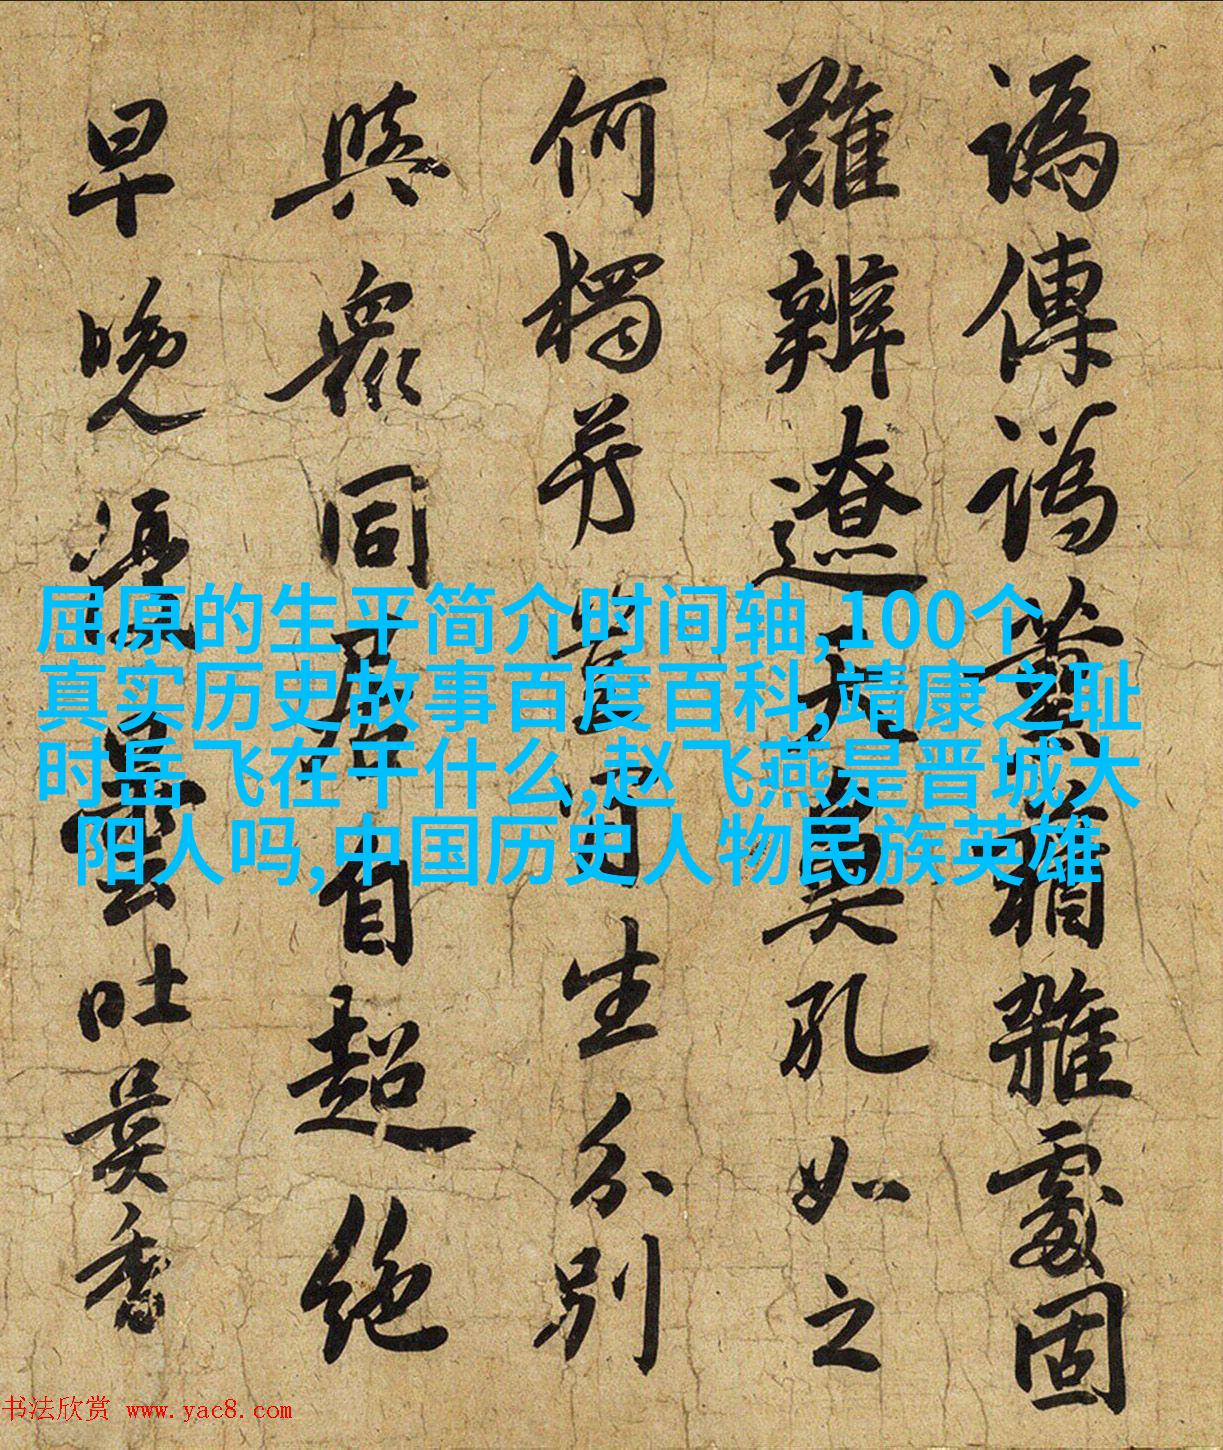 譌傳譌薰蕕雜處固
難辨遼天鼻孔如之
何獨生分別
衆同居自超絶
早晚曇吐異香
屈原的生平简介时间轴,100个
真实历史故事百度百科,靖康之耻
时岳飞在干什么,赵飞燕是晋城大
阳人吗,中国历史人物民族英雄
书法欣赏 www.yac8.com